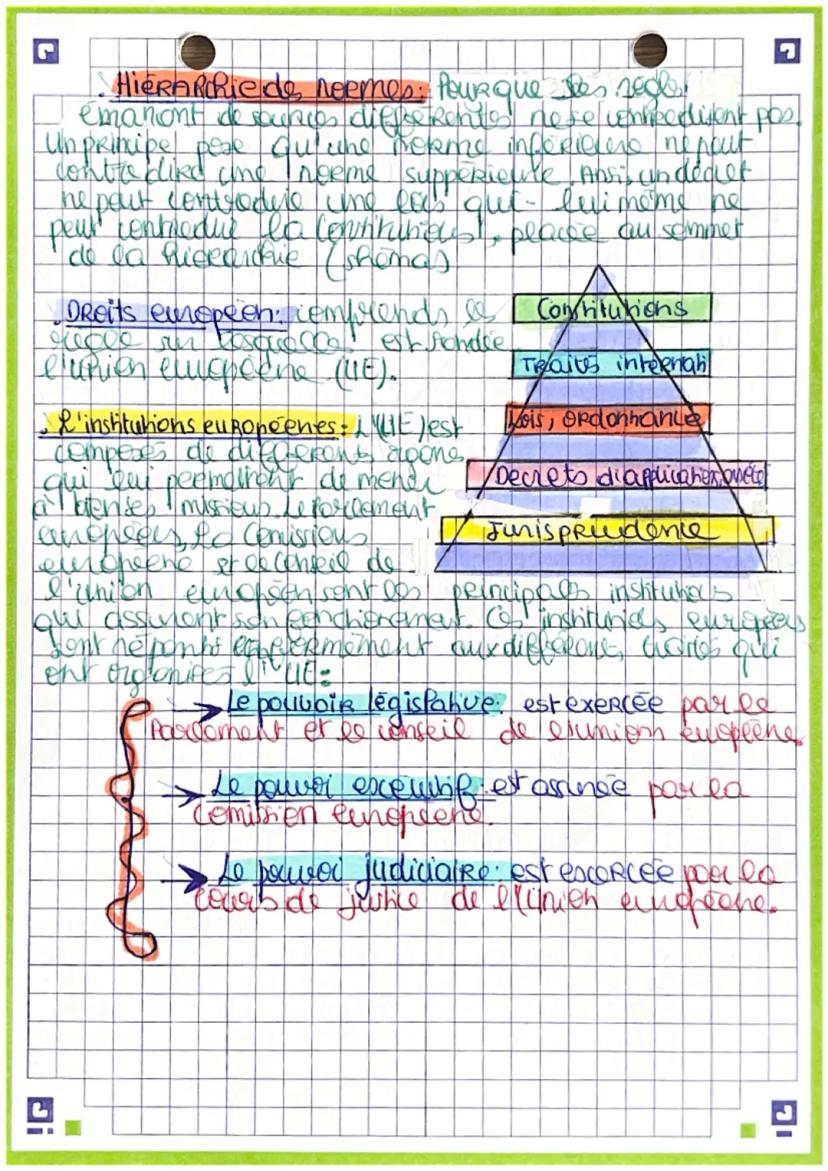 . Hiérarchie des normes: Pour que les règles
émanant de sources différentes ne se contredisent pas
un principe pose qu'une norme inférieure ne peut
contredire une norme suppérieure. Ansi, un décret
ne peut contredire une lois qui-lui même ne
peut contredire la Constitutions, placée au sommet
de la hiérarchie (shéma)
Constitutions
Traités internati
Lois, Ordonnance
Décrets d'application, arrêté
Jurisprudence
. Droits européen: comprends les
règle sur lesquelles est fondée
l'union européene (UE).
. L'institutions européenes: L'(UE) est
composés de différents
qui lui permettent de mener
à bien ses missions. Le Parlement
européen, La Comissions
européene et le Conseil de
l'union européen sont les principals institutions
qui assurent son fonctionement. Ces institutions européens
sont conformément aux différents traités qui
ont organisés l'UE:
→ Le pouvoir législative: est exercée par le
Parlement et le conseil de l'union européene.
→ Le pouvoi executif: est assurée par la
Comission européene.
→ Le pouvoi judiciaire: est excercée par la
Cours de justice de l'Union européene.